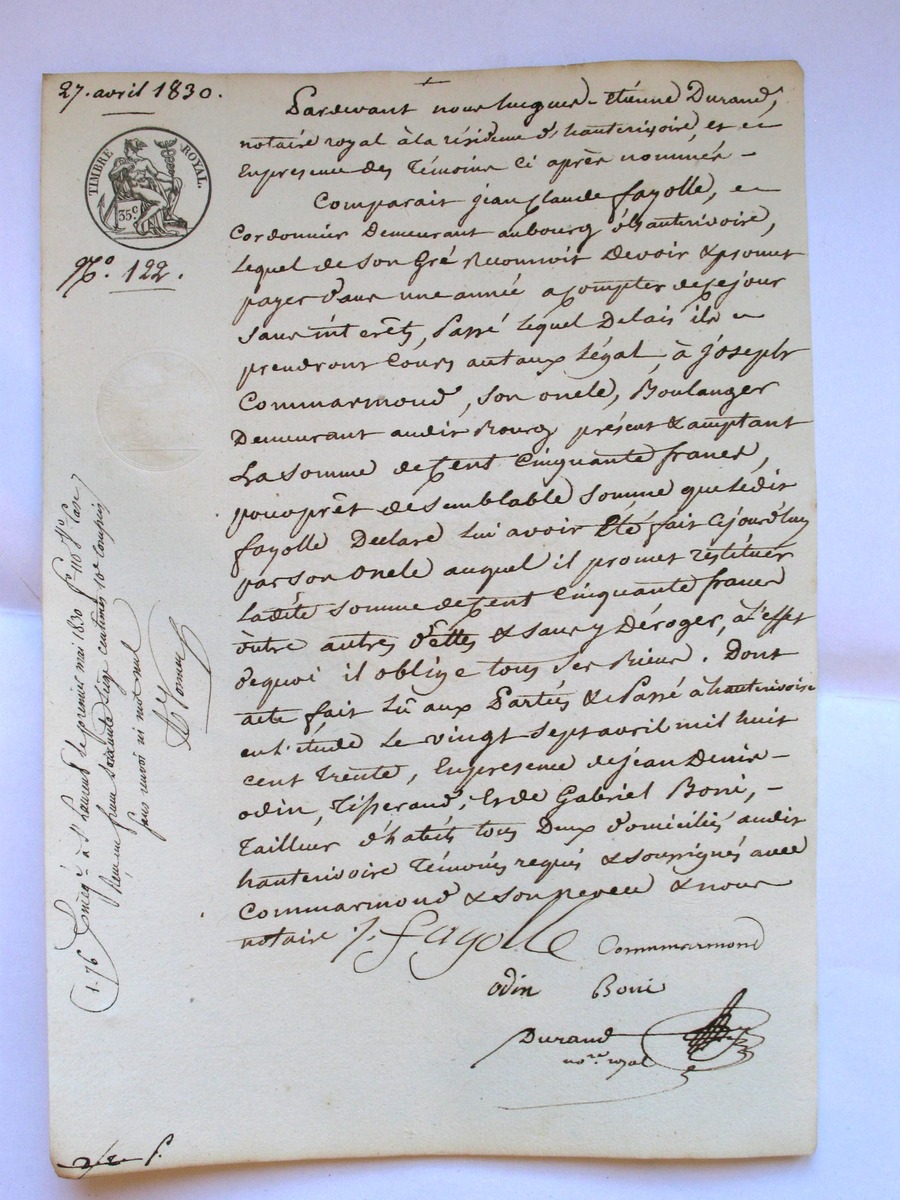 27. avril 1830.
TIMBRE ROYAL.
35c
No. 122.
Pardevant nous hugues-Etienne Durand,
notaire royal à la résidence d'hauterivoire, et en
En présence des Témoins Ci après nommés -
Comparait jean Claude fayolle,
Cordonnier Demeurant au bourg d'hauterivoire,
Lequel de Son Gré Reconnoit Devoir & promet
payer dans une année a Compter de ce jour
Sans intérêts, Passé lequel Delais ils
prendront Cours au taux légal, à Joseph
Commarmond, Son oncle, Boulanger
Demeurant audit Bourg présent & acceptant
La Somme de Cent Cinquante francs,
pour prêt de Semblable Somme que ledit
fayolle Declare lui avoir Eté fait Cejourd'huy
par Son Oncle auquel il promet restituer
Ladite Somme de Cent Cinquante francs
outre autres dettes & Sans y Déroger, à L'effet
de quoi il oblige tous Ses Biens. Dont
acte fait Lû aux Parties & Passé à hauterivoire
en L'étude Le vingt Sept avril mil huit
cent Trente, En présence de jean Denis-
odin, Tisserand, Et de Gabriel Boni, -
Tailleur d'habits tous Deux domiciliés audit
hauterivoire Témoins requis & Soussignés avec
Commarmond & Son neveu & nous
notaire
J. fayolle Commarmond
odin Boni
Durand
nore royal
Enreg. à St Laurent le premier mai 1830 fo 110
Reçu un franc soixante seize centimes 10e compris
sans renvoi ni mot nul
1.76